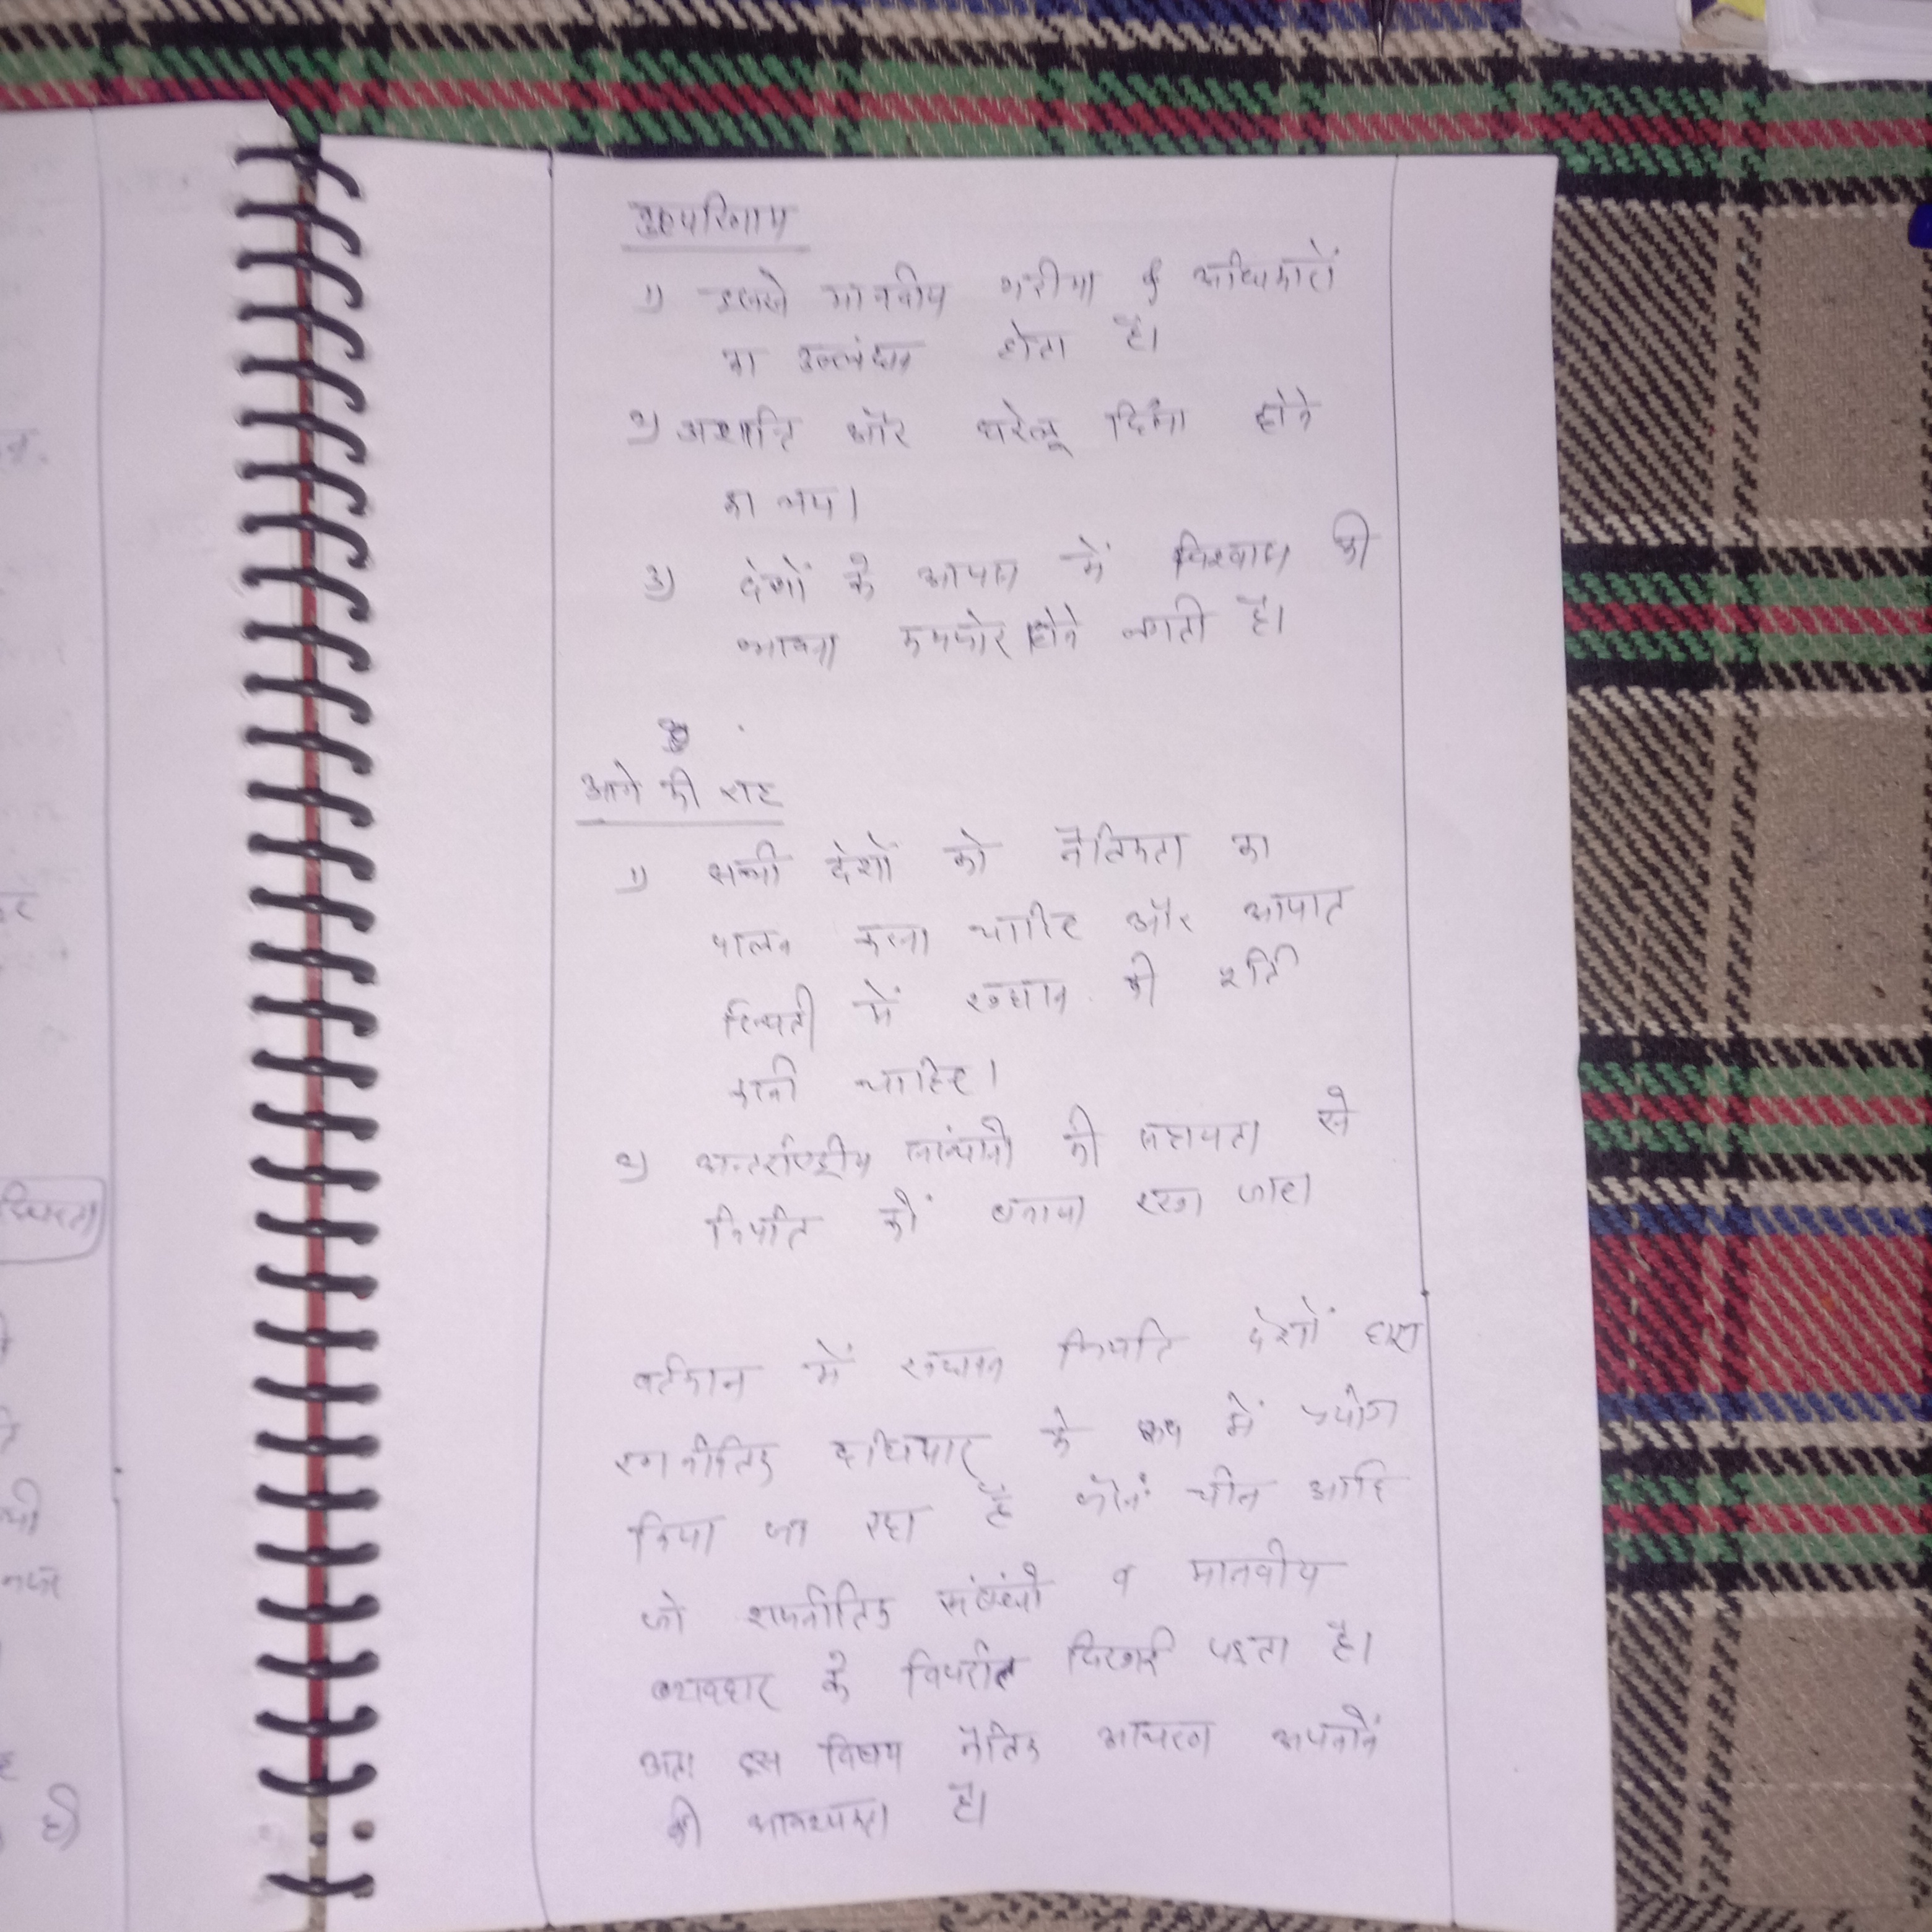 दुष्परिणाम
1) इससे मानवीय गरीमा व अधिकारों
का उल्लंघन होता है।
2) अशान्ति और घरेलू हिंसा होने
का भय।
3) देशों के आपस में विश्वास की
भावना कमजोर होने लगती है।
आगे की राह
1) सभी देशों को नैतिकता का
पालन करना चाहिए और आपात
स्थिती में खाद्यान की
करनी चाहिए।
2) अन्तर्राष्ट्रीय की सहायता से
निर्यात को बनाया रखा जाए।
वर्तमान में खाद्यान निर्यात देशों द्वारा
रणनीतिक हथियार के रूप में प्रयोग
किया जा रहा है जैसे चीन आदि
जो राजनीतिक संबंधो व मानवीय
व्यवहार के विपरीत दिखाई पड़ता है।
अतः इस विषय नैतिक आचरण अपनाने
की आवश्यकता है।
स्थिरता
ही